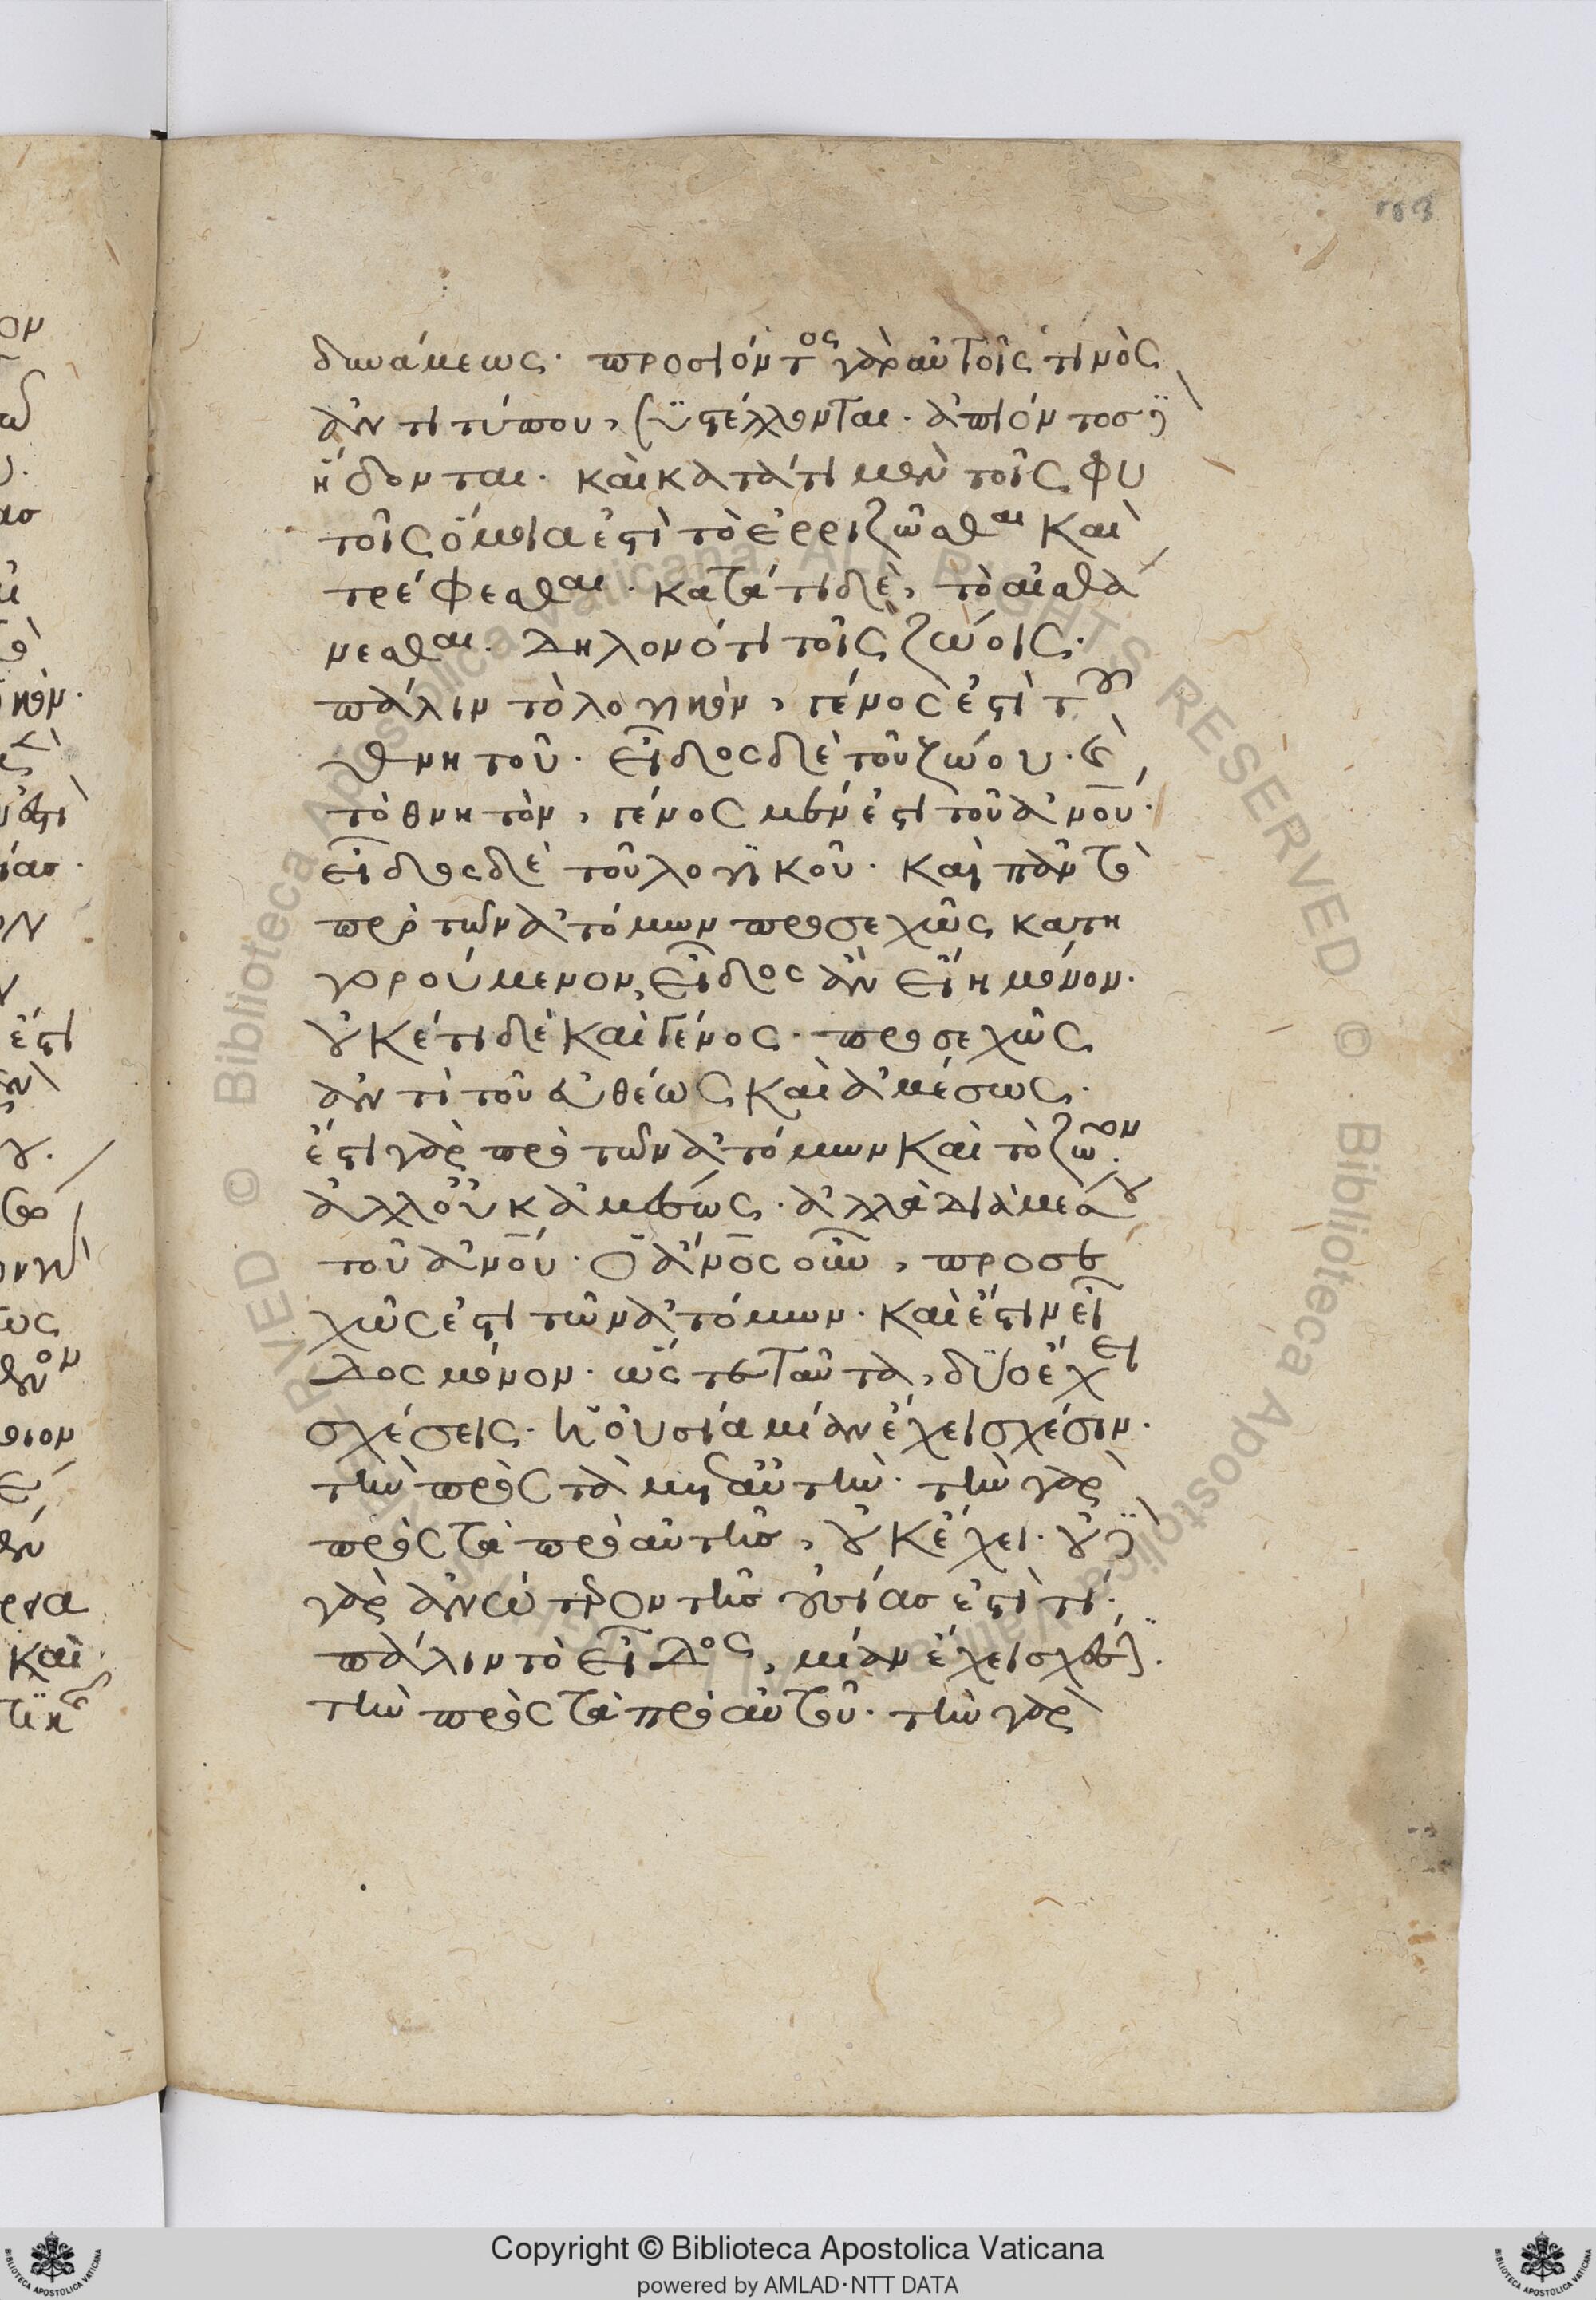 δυνάμεως· προσιόντος γὰρ αὐτοῖς τινὸς
ἀντιτύπου, συστέλλονται· ἀπιόντος δὲ
ἥδονται· καὶ κατά τι μὲν τοῖς φυ
τοῖς ὅμοιά ἐστι τὸ ἐρριζῶσθαι καὶ
τρέφεσθαι· κατά τι δὲ, τὸ αἰσθά
νεσθαι. δηλονότι τοῖς ζώοις·
πάλιν τὸ λογικὸν, γένος ἐστὶ τοῦ
θνητοῦ· εἶδος δὲ τοῦ ζώου· καὶ
τὸ θνητὸν, γένος μέν ἐστι τοῦ ἀνου·
εἶδος δὲ τοῦ λογικοῦ· καὶ πᾶν τὸ
πρὸ τῶν ἀτόμων προσεχῶς κατη
γορούμενον, εἶδος ἂν εἴη μόνον·
οὐκέτι δὲ καὶ γένος· προσεχῶς
ἀντὶ τοῦ εὐθέως καὶ ἀμέσως·
ἔστι γὰρ πρὸ τῶν ἀτόμων καὶ τὸ ζῶον·
ἀλλ' οὐκ ἀμέσως· ἀλλὰ διὰ μέσου
τοῦ ἀνου· ὁ ἀνος οὖν, προσε
χῶς ἐστι τῶν ἀτόμων· καὶ ἔστιν εἶ
δος μόνον· ὥστε ταῦτα, δύο ἔχει
σχέσεις· ἡ οὐσία μίαν ἔχει σχέσιν·
τὴν πρὸς τὰ μετ' αὐτήν· τὴν γὰρ
πρὸς τὰ πρὸ αὐτῆς, οὐκ ἔχει· οὐδὲ
γὰρ ἀνώτερον τῆς οὐσίας ἐστί τι·
πάλιν τὸ εἶδος, μίαν ἔχει σχέσιν·
τὴν πρὸς τὰ πρὸ αὐτοῦ· τὴν γὰρ
Copyright © Biblioteca Apostolica Vaticana
powered by AMLAD·NTT DATA